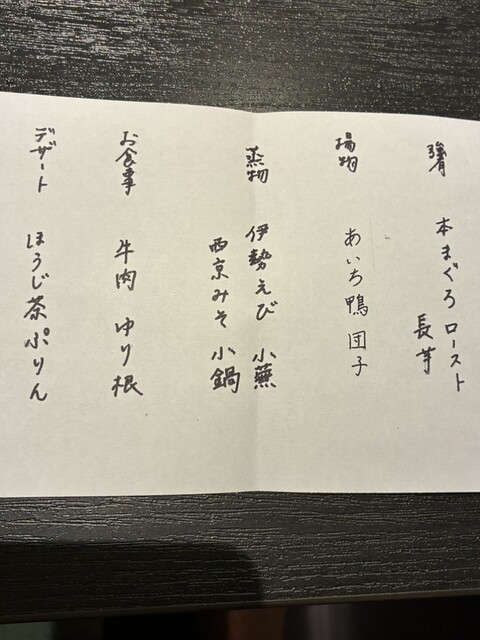 強肴
本まぐろ ロースト
長芋
揚物
あいち鴨 団子
蒸物
伊勢えび 小蕪
西京みそ 小鍋
お食事
牛肉 ゆり根
デザート
ほうじ茶ぷりん